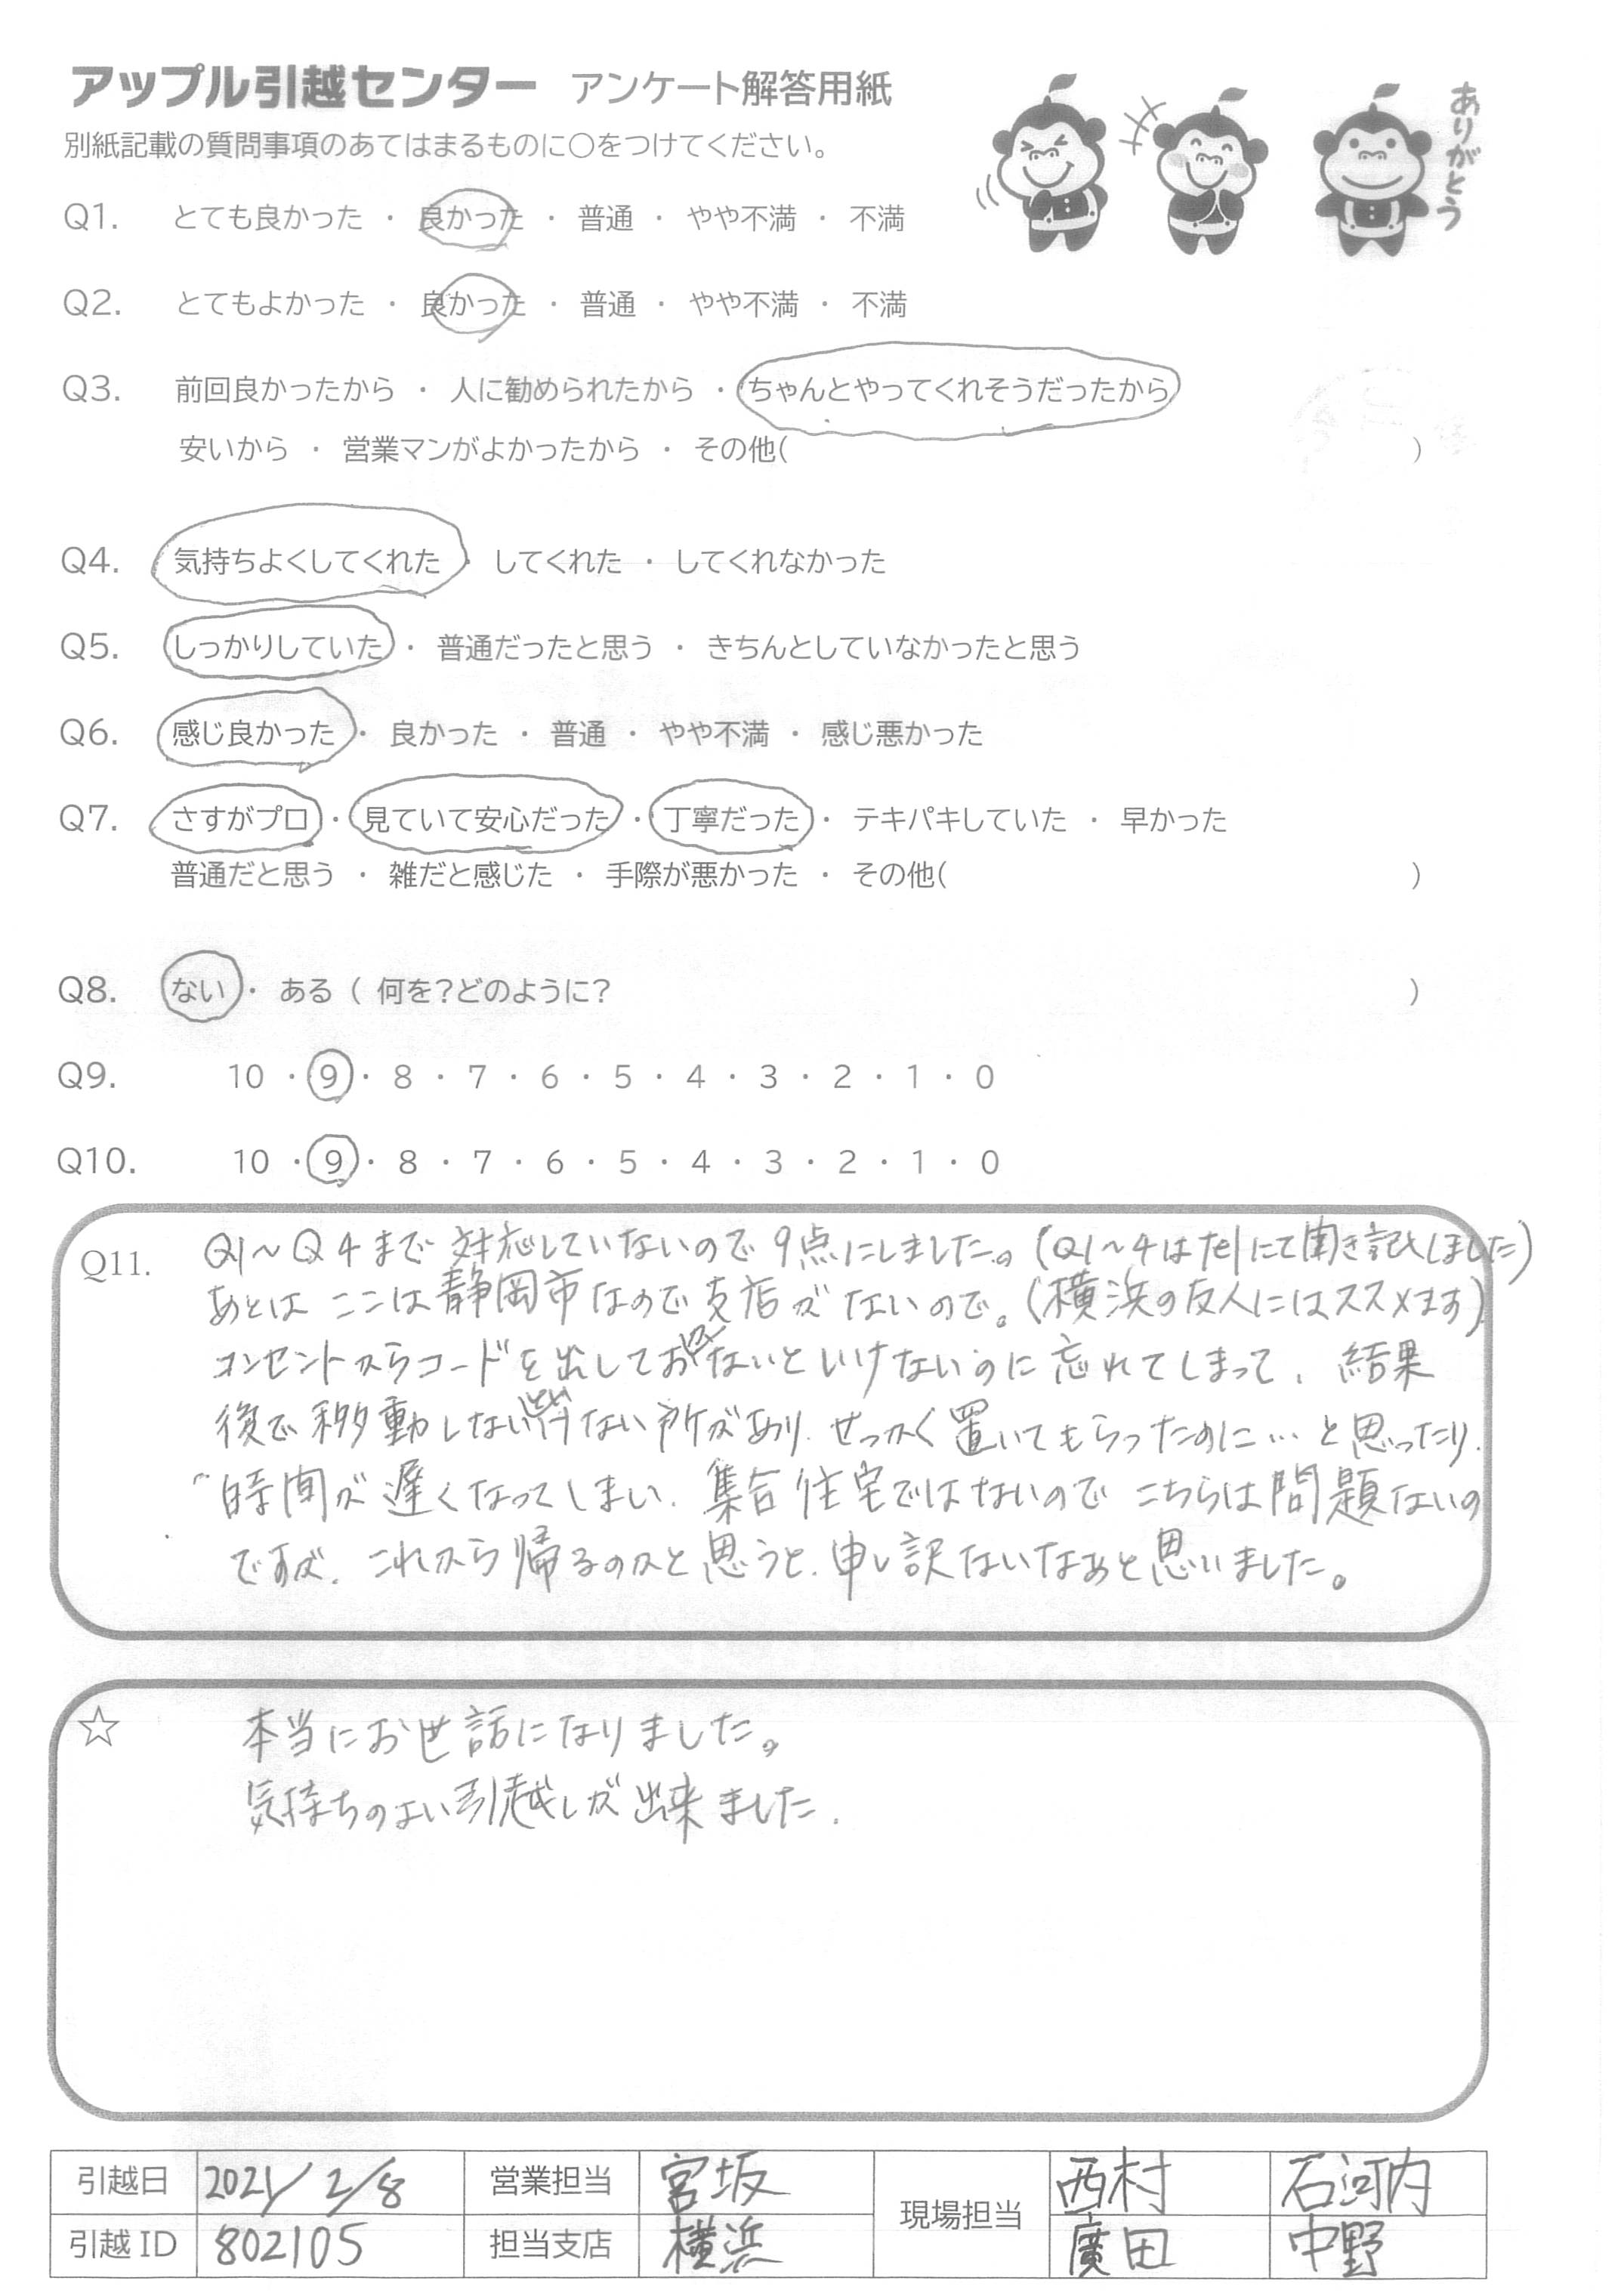 アップル引越センター アンケート解答用紙
ありがとう
別紙記載の質問事項のあてはまるものに○をつけてください。
Q1. とても良かった ・ 良かった ・ 普通 ・ やや不満 ・ 不満
Q2. とてもよかった ・ 良かった ・ 普通 ・ やや不満 ・ 不満
Q3. 前回良かったから ・ 人に勧められたから ・ ちゃんとやってくれそうだったから
安いから ・ 営業マンがよかったから ・ その他( )
Q4. 気持ちよくしてくれた ・ してくれた ・ してくれなかった
Q5. しっかりしていた ・ 普通だったと思う ・ きちんとしていなかったと思う
Q6. 感じ良かった ・ 良かった ・ 普通 ・ やや不満 ・ 感じ悪かった
Q7. さすがプロ ・ 見ていて安心だった ・ 丁寧だった ・ テキパキしていた ・ 早かった
普通だと思う ・ 雑だと感じた ・ 手際が悪かった ・ その他( )
Q8. ない ・ ある ( 何を?どのように? )
Q9. 10 ・ 9 ・ 8 ・ 7 ・ 6 ・ 5 ・ 4 ・ 3 ・ 2 ・ 1 ・ 0
Q10. 10 ・ 9 ・ 8 ・ 7 ・ 6 ・ 5 ・ 4 ・ 3 ・ 2 ・ 1 ・ 0
Q11. Q1～Q4まで対応していないので9点にしました。(Q1～4はtelにて聞き記しました)
あとは ここは静岡市なので支店がないので。(横浜の友人にはススメます)
コンセントからコードを出しておかないといけないのに忘れてしまって、結果
後で移動しないといけない所があり、せっかく置いてもらったのに…と思ったり、
時間が遅くなってしまい、集合住宅ではないのでこちらは問題ないの
ですが、これから帰るのかと思うと、申し訳ないなあと思いました。
☆ 本当にお世話になりました。
気持ちのよい引越しが出来ました。
引越日 2021/2/8 営業担当 宮坂 現場担当 西村 石河内
引越ID 802105 担当支店 横浜 廣田 中野